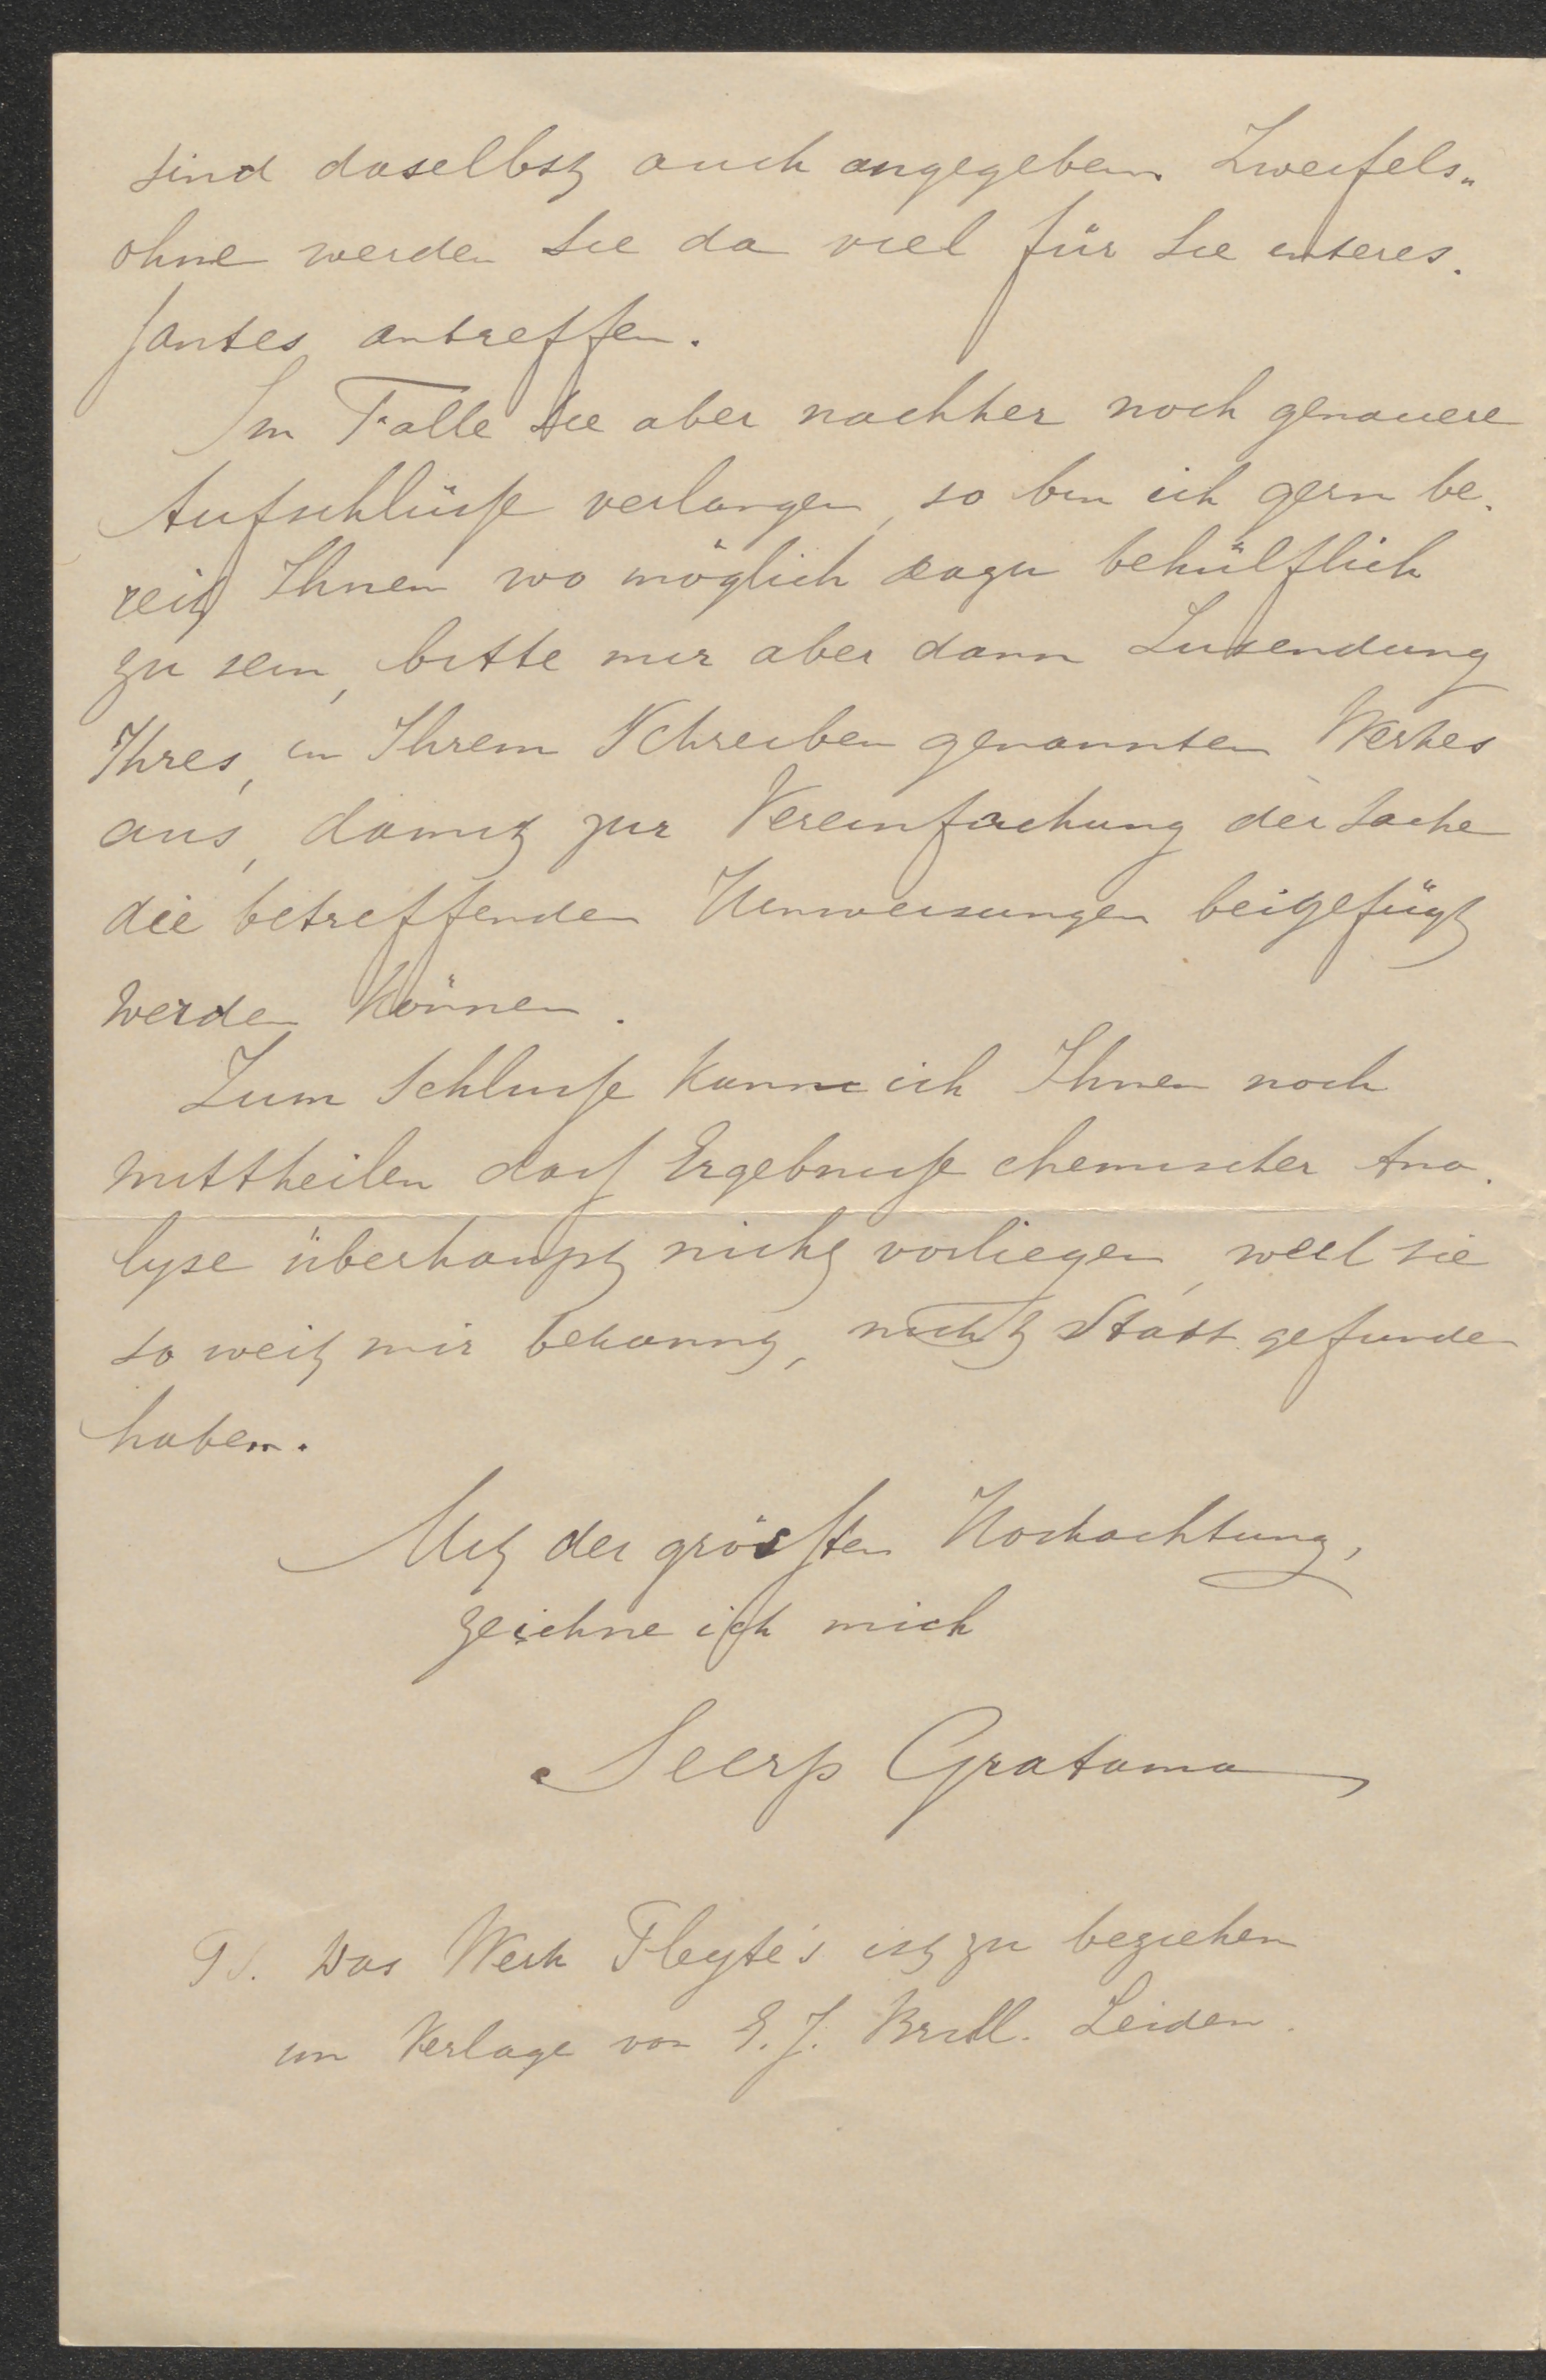 sind daselbst auch angegeben. Zweifels„
ohne werden Sie da viel für Sie interes.
santes antreffen.
Im Falle Sie aber nachher noch genauere
Aufschlüsse verlangen, so bin ich gern be.
reit Ihnen wo möglich dazu behülflich
zu sein, bitte mir aber dann Zusendung
Ihres, in Ihrem Schreiben genannten Werkes
aus, damit zur Vereinfachung der Sache
die betreffenden Hinweisungen beigefügt
werden können.
Zum Schlusse kann ich Ihnen noch
mittheilen dass Ergebnisse chemischer Ana.
lyse überhaupt nicht vorliegen, weil sie
so weit mir bekannt, nicht Statt gefunden
haben.
Mit der grössten Hochachtung,
zeichne ich mich
Seerp Gratama
PS. Das Werk Pleyte's ist zu beziehen
im Verlage von E. J. Brill. Leiden.